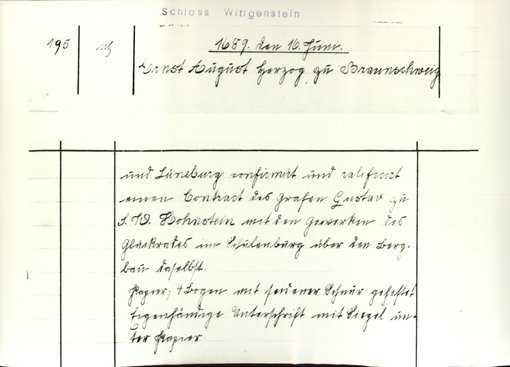 Schloss Wittgenstein
195
1689. den 16. Juni.
Ernst August Herzog zu Braunschweig
und Lüneburg confirmirt und ratificirt
einen Contract des Grafen Gustav zu
S. W. Hohnstein mit den Gewerken des
Glücksrades im Schulenburg über den Berg-
bau daselbst.
Papier; 4 Bogen mit seidener Schnur geheftet
Eigenhändige Unterschrift mit Siegel un-
ter Papier